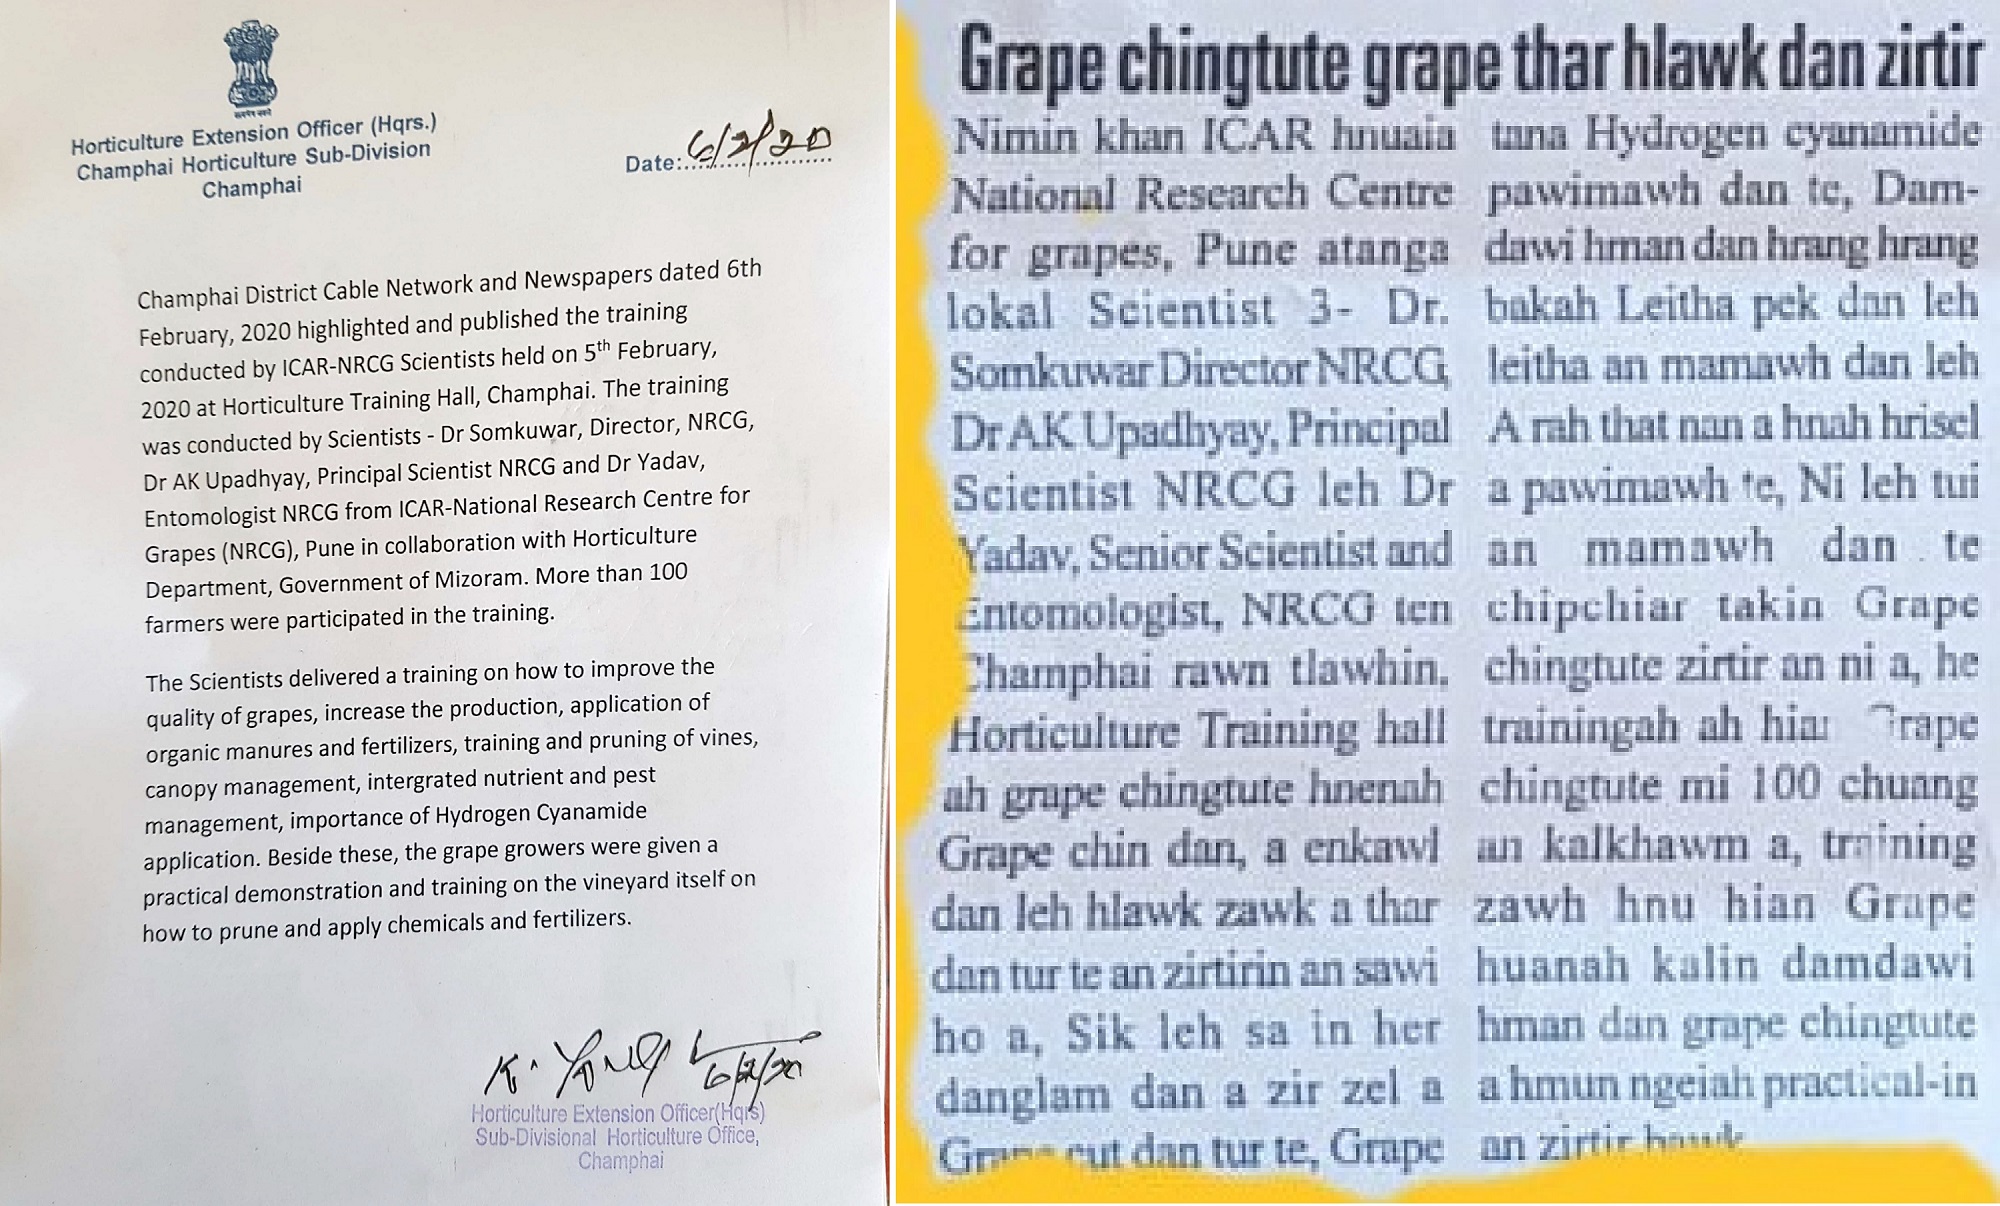 Horticulture Extension Officer (Hqrs.)
Champhai Horticulture Sub-Division
Champhai
Date:..6/2/20
Champhai District Cable Network and Newspapers dated 6th
February, 2020 highlighted and published the training
conducted by ICAR-NRCG Scientists held on 5th February,
2020 at Horticulture Training Hall, Champhai. The training
was conducted by Scientists - Dr Somkuwar, Director, NRCG,
Dr AK Upadhyay, Principal Scientist NRCG and Dr Yadav,
Entomologist NRCG from ICAR-National Research Centre for
Grapes (NRCG), Pune in collaboration with Horticulture
Department, Government of Mizoram. More than 100
farmers were participated in the training.
The Scientists delivered a training on how to improve the
quality of grapes, increase the production, application of
organic manures and fertilizers, training and pruning of vines,
canopy management, intergrated nutrient and pest
management, importance of Hydrogen Cyanamide
application. Beside these, the grape growers were given a
practical demonstration and training on the vineyard itself on
how to prune and apply chemicals and fertilizers.
6/2/20
Horticulture Extension Officer(Hqrs)
Sub-Divisional Horticulture Office,
Champhai
Grape chingtute grape thar hlawk dan zirtir
Nimin khan ICAR hnuaia
National Research Centre
for grapes, Pune atanga
lokal Scientist 3- Dr.
Somkuwar Director NRCG,
Dr AK Upadhyay, Principal
Scientist NRCG leh Dr
Yadav, Senior Scientist and
Entomologist, NRCG ten
Champhai rawn tlawhin,
Horticulture Training hall
ah grape chingtute hnenah
Grape chin dan, a enkawl
dan leh hlawk zawk a thar
dan tur te an zirtirin an sawi
ho a, Sik leh sa in her
danglam dan a zir zel a
Grape cut dan tur te, Grape
tana Hydrogen cyanamide
pawimawh dan te, Dam-
dawi hman dan hrang hrang
bakah Leitha pek dan leh
leitha an mamawh dan leh
A rah that nan a hnah hrisel
a pawimawh te, Ni leh tui
an mamawh dan te
chipchiar takin Grape
chingtute zirtir an ni a, he
trainingah ah hian Grape
chingtute mi 100 chuang
an kalkhawm a, training
zawh hnu hian Grape
huanah kalin damdawi
hman dan grape chingtute
a hmun ngeiah practical-in
an zirtir bawk